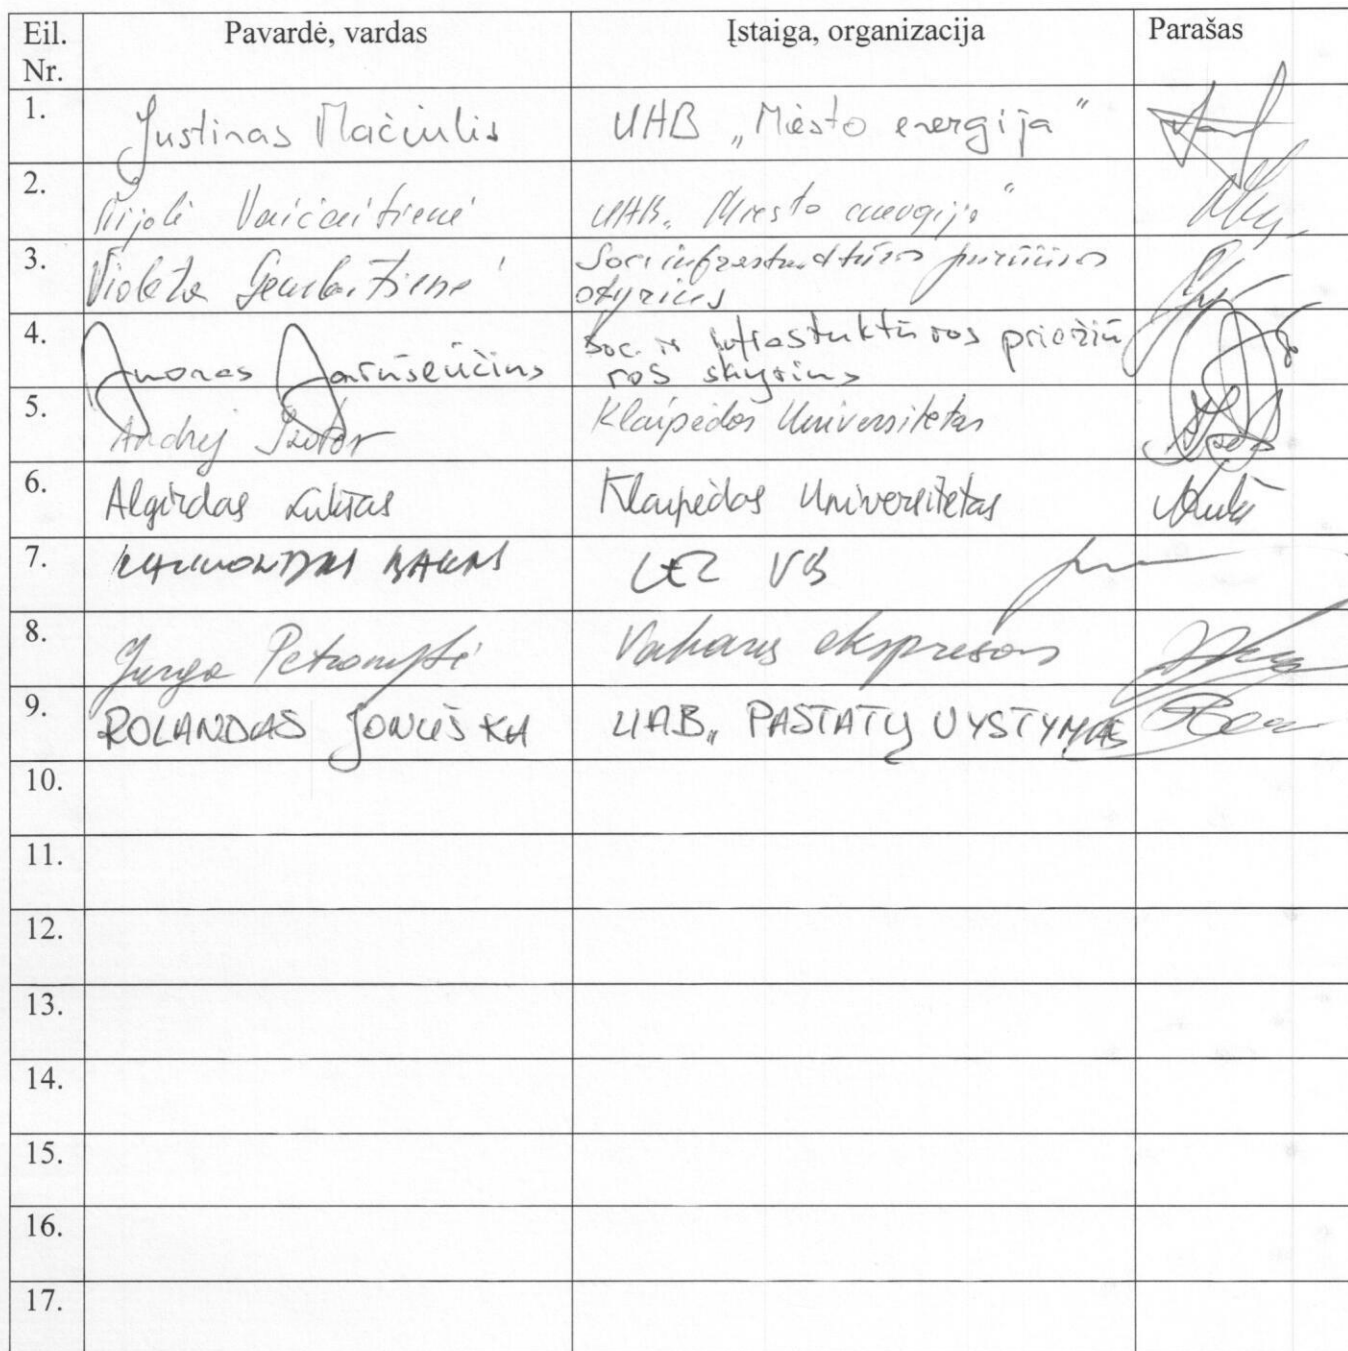 Eil. Nr. Pavardė, vardas Įstaiga, organizacija Parašas
1. Justinas Mačiulis UAB „Miesto energija"
2. Vaičaitienė UAB „Miesto energija"
3. Violeta Soc. infrastruktūros priežiūros
skyrius
4. Soc. ir infrastuktūros priežiū
ros skyrius
5. Andrej Klaipėdos Universitetas
6. Algirdas Klaipėdos Universitetas
7. LEZ VB
8. Jurga Petronytė Vakarų ekspresas
9. ROLANDAS JONUŠKA UAB„ PASTATŲ VYSTYMAS
10.
11.
12.
13.
14.
15.
16.
17.